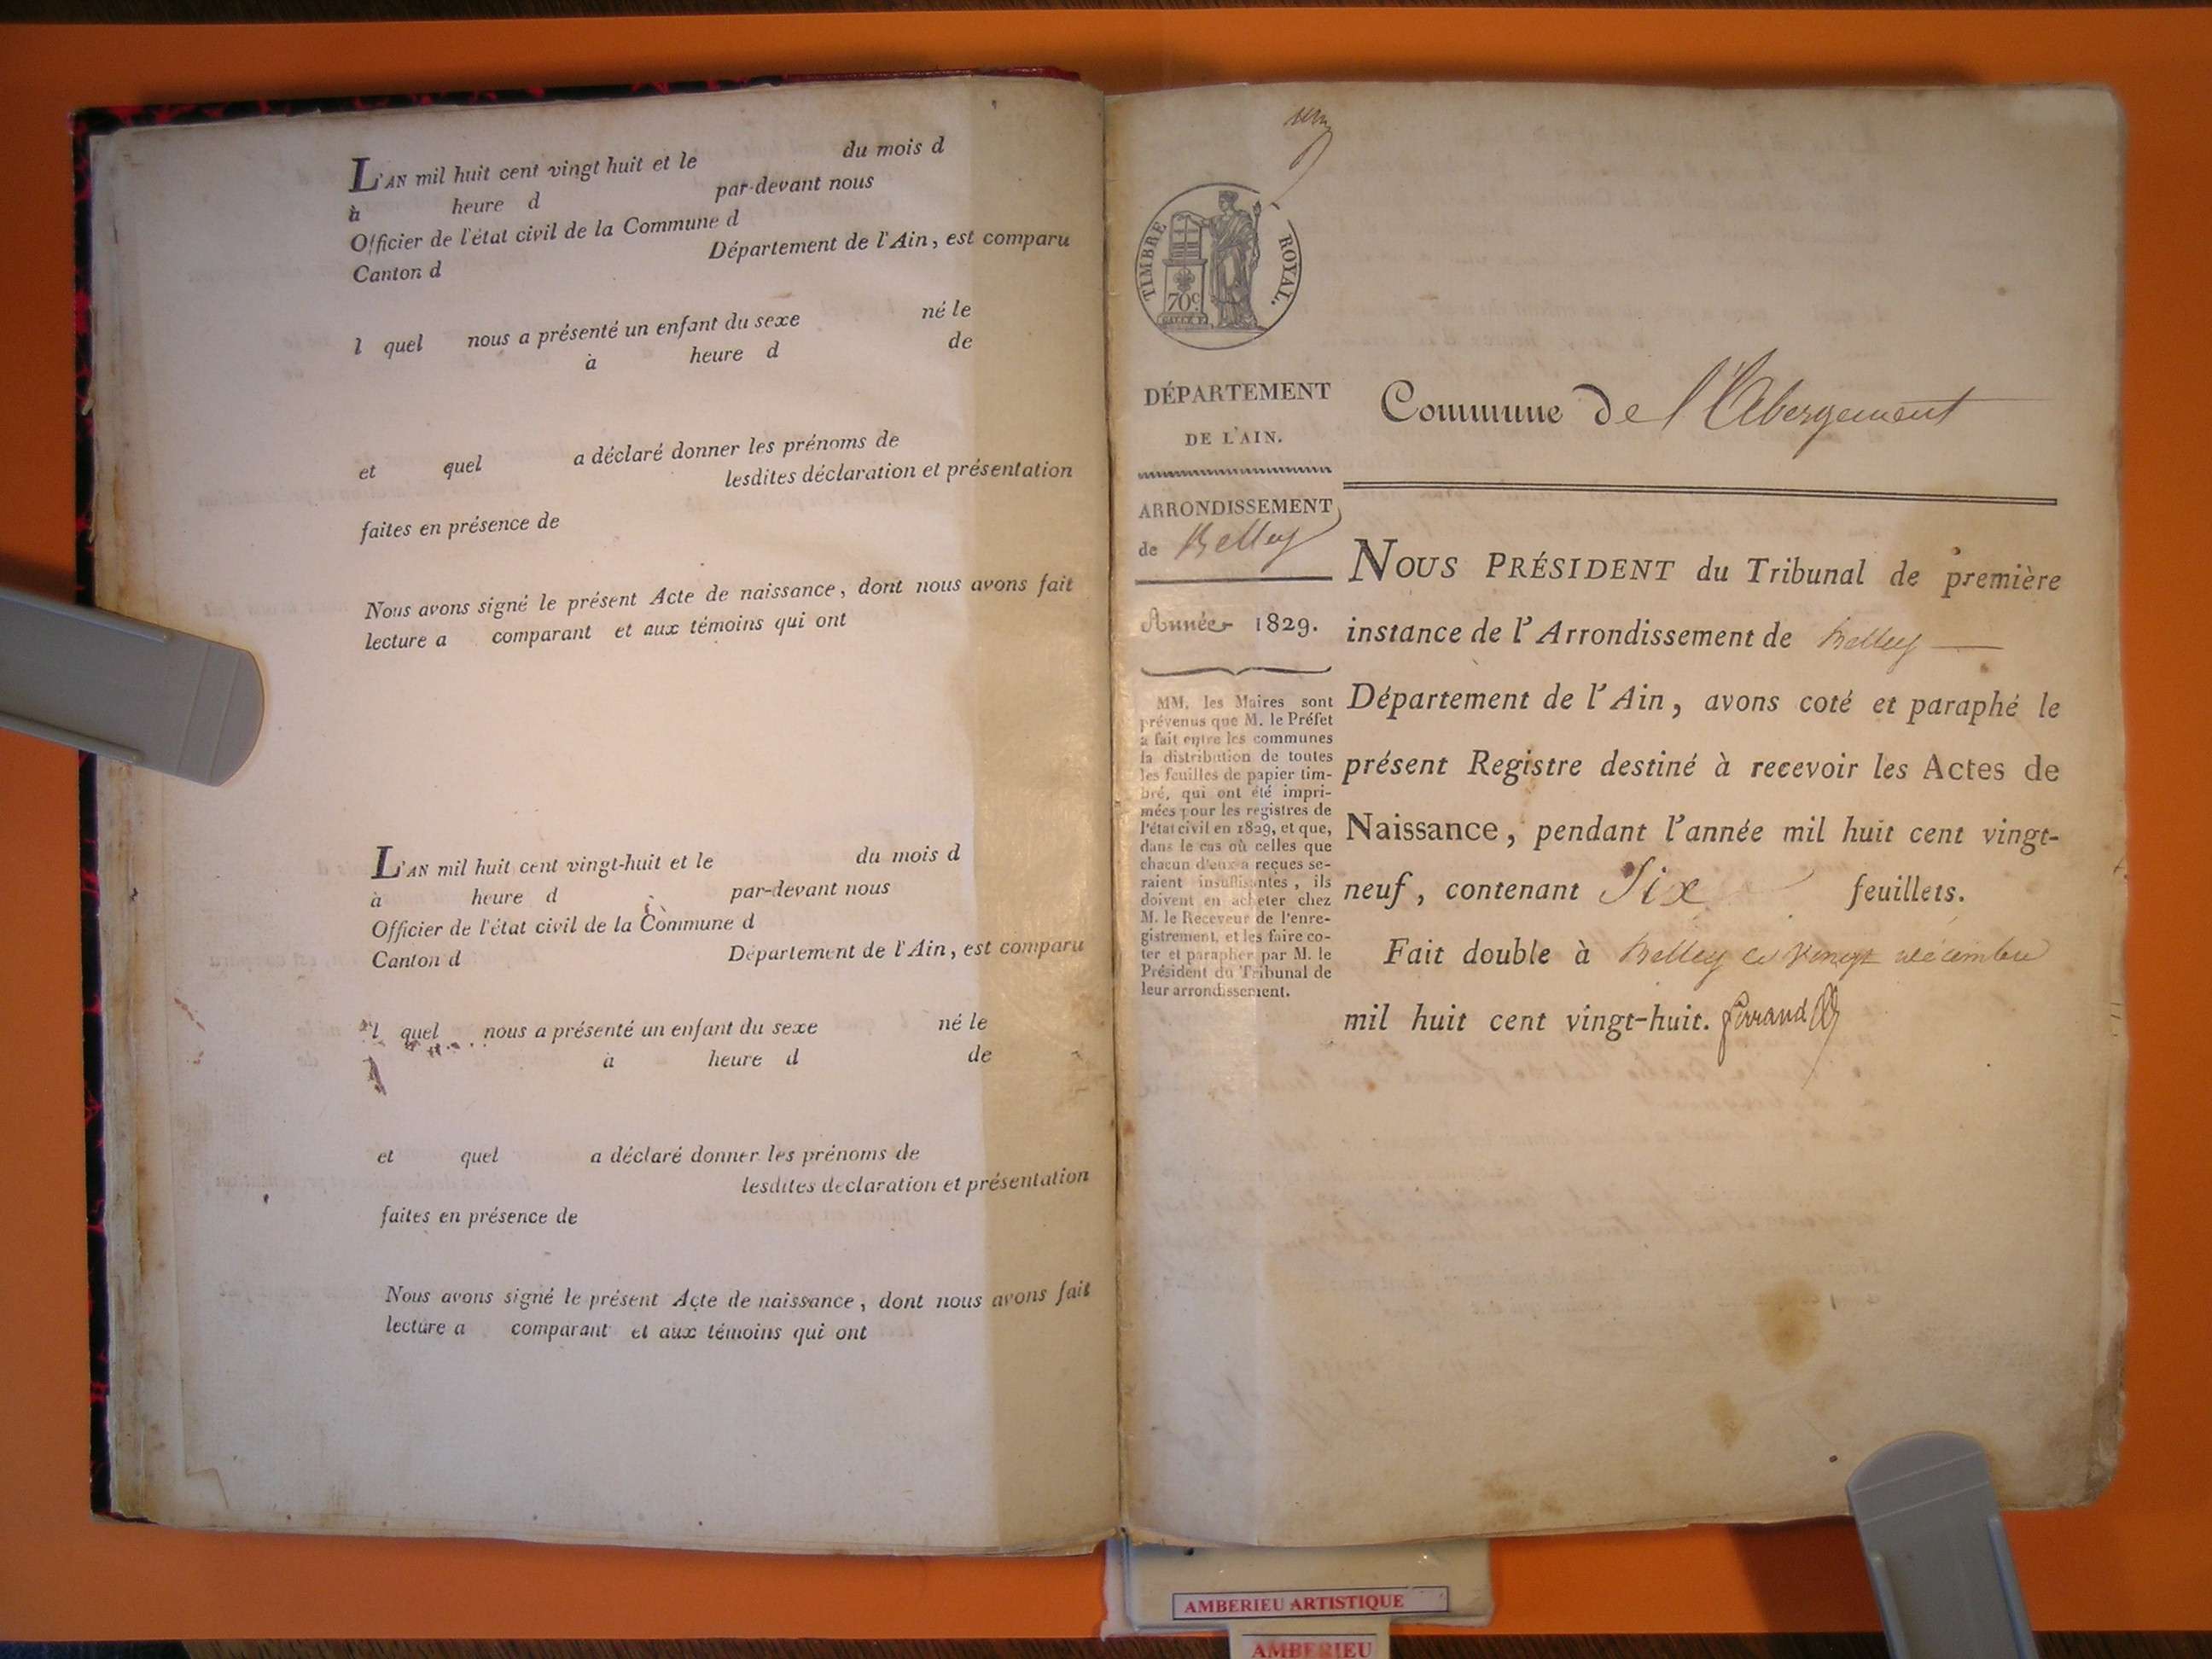 L'AN mil huit cent vingt huit et le du mois d
à heure d par-devant nous
Officier de l'état civil de la Commune d
Canton d Département de l'Ain, est comparu
l quel nous a présenté un enfant du sexe né le
à heure d de
et quel a déclaré donner les prénoms de
lesdites déclaration et présentation
faites en présence de
Nous avons signé le présent Acte de naissance, dont nous avons fait
lecture a comparant et aux témoins qui ont
L'AN mil huit cent vingt-huit et le du mois d
à heure d par-devant nous
Officier de l'état civil de la Commune d
Canton d Département de l'Ain, est comparu
l quel nous a présenté un enfant du sexe né le
à heure d de
et quel a déclaré donner les prénoms de
lesdites declaration et présentation
faites en présence de
Nous avons signé le présent Acte de naissance, dont nous avons fait
lecture a comparant et aux témoins qui ont
TIMBRE ROYAL.
70c
DÉPARTEMENT
DE L'AIN.
ARRONDISSEMENT
de Belley
Année 1829.
MM. les Maires sont
prévenus que M. le Préfet
a fait entre les communes
la distribution de toutes
les feuilles de papier tim-
bré, qui ont été impri-
mées pour les registres de
l'état civil en 1829, et que,
dans le cas où celles que
chacun d'eux a reçues se-
raient insuffisantes, ils
doivent en acheter chez
M. le Receveur de l'enre-
gistrement, et les faire co-
ter et parapher par M. le
Président du Tribunal de
leur arrondissement.
Commune de l'Abergement
NOUS PRÉSIDENT du Tribunal de première
instance de l'Arrondissement de Belley
Département de l'Ain, avons coté et paraphé le
présent Registre destiné à recevoir les Actes de
Naissance, pendant l'année mil huit cent vingt-
neuf, contenant Six feuillets.
Fait double à Belley le vingt décembre
mil huit cent vingt-huit.
AMBERIEU ARTISTIQUE
AMBERIEU